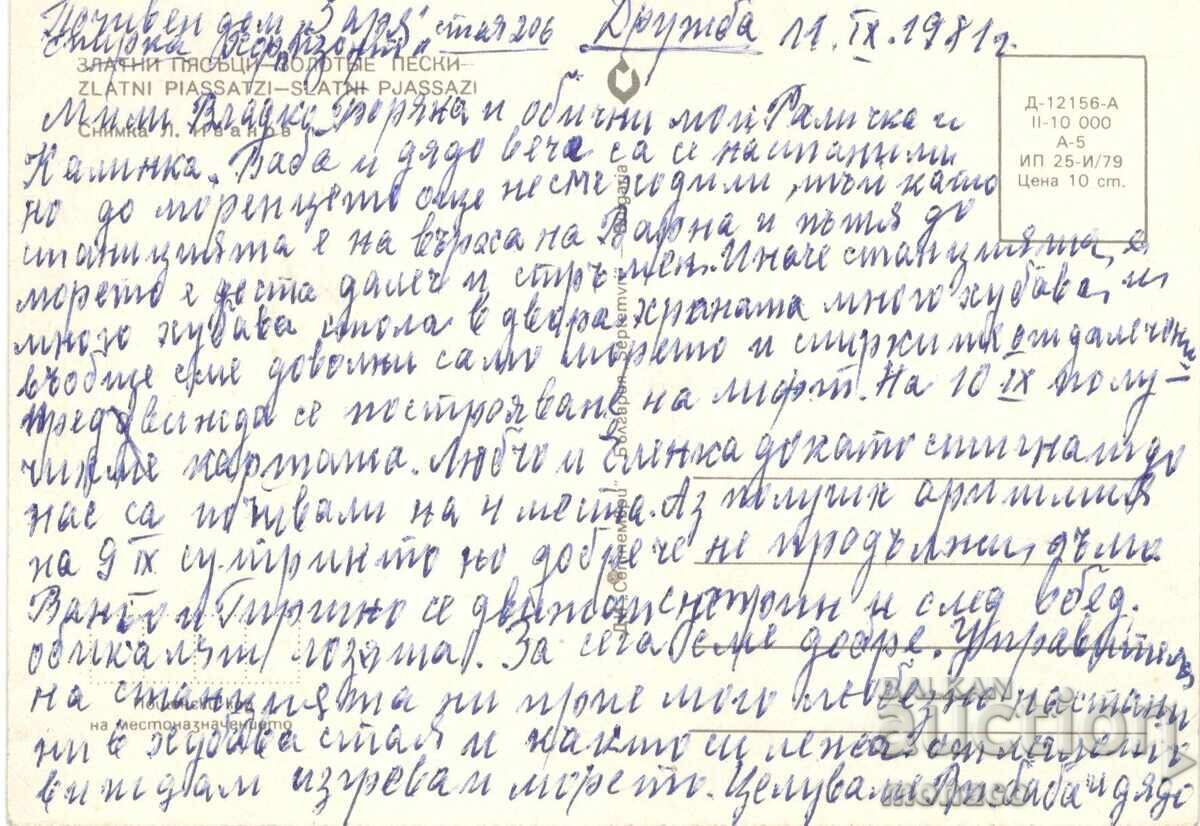 Почивен дом „Заря" стая 206 Дружба 11.IX.1981 г.
спирка „Хоризонт"
ЗЛАТНИ ПЯСЪЦИ—ЗОЛОТЫЕ ПЕСКИ—
ZLATNI PIASSATZI—SLATNI PJASSAZI
Снимка Л. Иванов
Мили Владко, Боряна и обични мои Раличка и
Калинка, Баба и дядо вече са се настанили
но до моренцето още несме ходили, тъй като
станцията е на върха на Варна и пътя до
морето е доста далеч и стръмен. Иначе станцията е
много хубава стола в двора храната много хубава, и
въобще сме доволни само морето и спирките отдалечени
предвижда се построяване на лифт. На 10 IX полу-
чихме картата. Любчо и Еленка докато стигнат до
нас са почивали на 4 места. Аз получих аритмия
на 9 IX сутринта но добрече не продължи дълго
Ванто и се движат сутрин и след обед.
обикалят лозята. За сега сме добре. Управителя
на станцията ни прие много любезно настани
ни в хубава стая и както си лежа на леглото
виждам изгревам морето. Целуваме Ви баба и дядо
Д-12156-А
II-10 000
А-5
ИП 25-И/79
Цена 10 ст.
ДИ „Септември" България — Septemvri — Bulgaria
Пощенски код
на местоназначението
BALKAN
auction